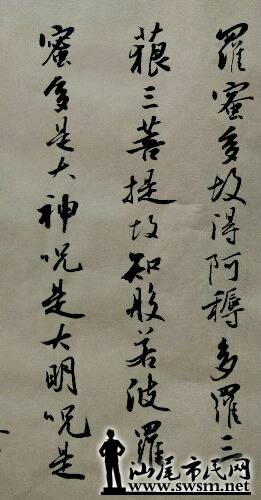 羅蜜多故得阿耨多羅三
藐三菩提故知般若波羅
蜜多是大神咒是大明咒是
汕尾市民网
www.swsm.net